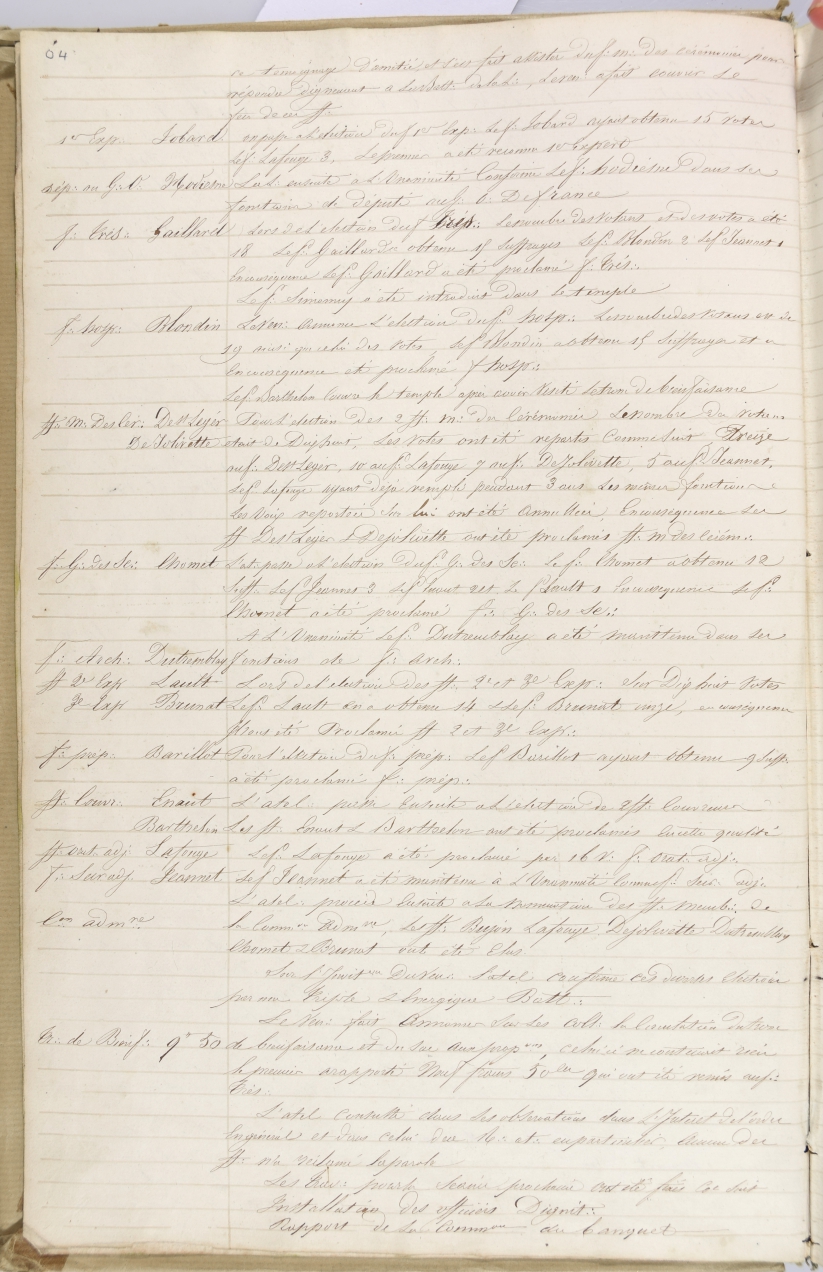 64
ce temoignage d'amitié, s'est fait assister du f∴ m∴ des cérémonies pour
répondre dignement à la Batt∴ de la L∴, le ven a fait couvrir le
feu de ces ff∴
1er Exp∴ Jobard on passe a l'election du f 1er Exp. Le f∴ Jobard ayant obtenu 15 votes
Le f∴ Lafouge 3, Le premier a été reconnu 1er expert
rép∴ au G∴ O∴ Hodiesne La L∴ ensuite a l'Unanimité Confirme Le f∴ hodiesne dans ses
fonctions de député au G∴ O∴ De france
f∴ Trés∴ Gaillard Lors de l'election du f Trés∴ Le nombre des Votans et des votes a été
18 Le f∴ Gaillard a obtenu 15 suffrages Le f∴ Blondin 2 Le f Jeannet 1
En consequence Le f∴ Gaillard a été proclamé f∴ Trés∴
Le f∴ Simonny a été introduit dans le temple
f∴ hosp∴ Blondin Le ven∴ annonce l'election du f∴ hosp∴ Le nombre des Votans est de
19 ainsi que celui des Votes, Le f Blondin a obtenu 15 Suffrages et a
En consequence été proclamé f hosp∴
Le f Barthelon couvre le temple après avoir Visité le tronc de bienfaisance
ff∴ M∴ Des Cér∴ De St Leger Pour l'election des 2 ff∴ m∴ des Cérémonies Le nombre des Votans
De Jolivette etait de Dixhuit, Les Votes ont été repartis Comme suit, Treize
au f∴ De St Leger, 10 au f∴ Lafouge 7 au f∴ De Jolivette, 5 au f∴ Jeannet.
Le f∴ Lafouge ayant déjà rempli pendant 3 ans Les mêmes fonctions
Les Voix reportées sur lui ont été Annullées, En consequence Les
ff De St Leger & Dejolivette ont été proclamés ff∴ m des Cérém∴
f∴ G∴ des Sc∴ Chomet L'at passe a l'election du f∴ G∴ des Sc∴ Le f∴ Chomet a obtenu 12
Suff∴ Le f Jeannet 3 Le f 2 et Le f Sault 1 En consequence Le f∴
Chomet a été proclamé f∴ G∴ des Sc∴
A l'Unanimité Le f∴ Dutremblay a été maintenu dans ses
f∴ Arch∴ Dutremblay fonctions de f∴ Arch∴
ff 2e Exp Lault Lors de l'election des ff∴ 2e et 3e Exp∴ sur Dixhuit Votes
3e Exp Brunat Le f∴ Lault en a obtenu 14 & Le f∴ Brunat onze, en consequence
Ils ont été Proclamés ff 2 et 3e Exp∴
f∴ prép∴ Barillot Pour l'election du f∴ prép∴ Le f Barillot ayant obtenu 9 Suff∴
a été proclamé f∴ prép∴
ff∴ Couvr∴ Enaut L'atel∴ passe Ensuite a l'election de 2 ff∴ Couvreurs
Barthelon Les ff∴ Enaut & Barthelon ont été proclamés En cette qualité
ff∴ orat∴ adj∴ Lafouge Le f∴ Lafouge a été proclamé par 16 V∴ f∴ Orat∴ adj∴
f∴ Sec adj∴ Jeannet Le f Jeannet a été maintenu a l'Unanimité Comme f∴ Sec∴ adj∴
L'atel∴ procéde Ensuite a la Nomination des ff∴ Memb∴ de
Con admve la Common Admve, Les ff∴ Lafouge Dejolivette Dutremblay
Chomet & Brunat ont été Elus
Sur l'Invitton Du Ven∴ L'atel confirme ces diverses Elections
par une Triple & Energique Batt∴
Le Ven∴ fait Annoncer Sur Les Coll∴ la Circulation du tronc
Tr∴ de Bienf∴ 9f 50 de bienfaisance et du Sac aux propons, celui ci ne contenait rien
le premier a rapporté Neuf francs 50 ces qui ont été remis au f∴
Trés∴
L'atel Consulté dans Ses observations dans l'Interet de l'ordre
En général et dans celui de la R∴ et∴ en particulier, aucun des
ff∴ n'a reclamé la parole
Les trav∴ pour la Séance prochaine ont été fixés Comme suit
Installation des officiers Dignit∴
Rapport de la Common du banquet